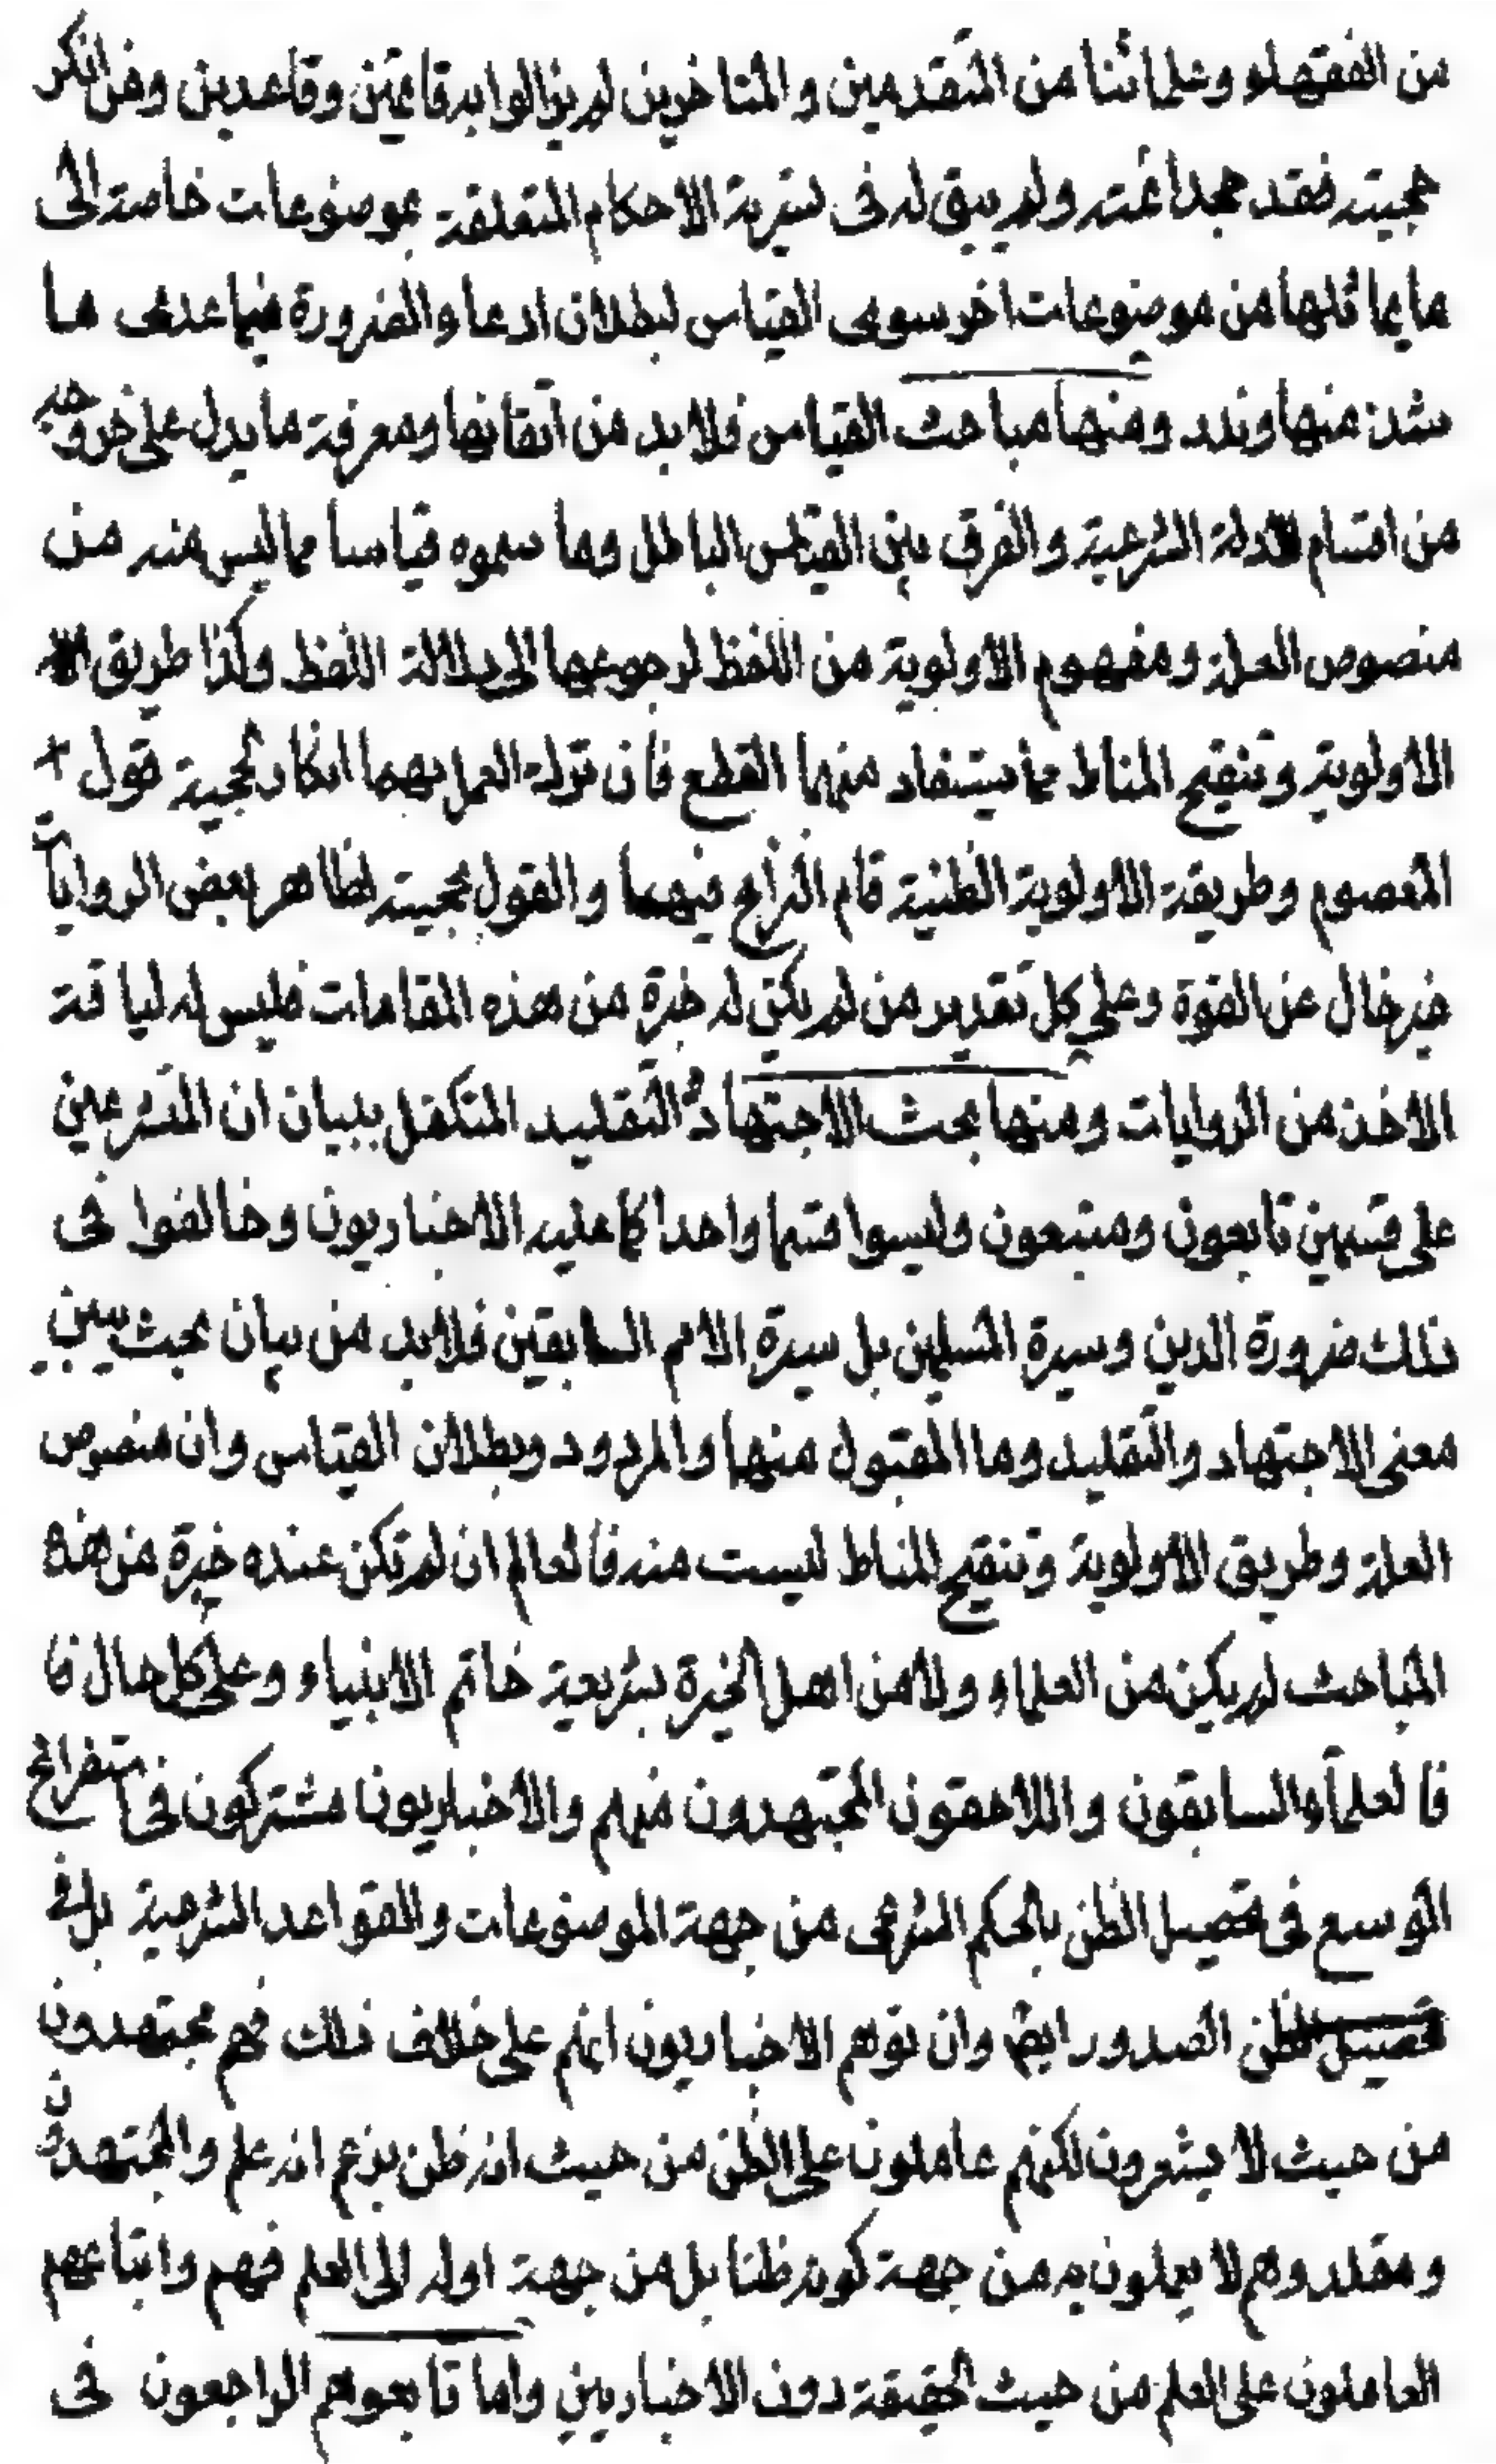 من الفقهاء وعلمائنا من المتقدمين والمتاخرين لم يزالوا به قائمين وقاعدين ومن انكر
حجيته فقد جحد اغته ولم يبق له فى تسرية الاحكام المتعلقة بموضوعات خاصة الى
ما يماثلها من موضوعات اخر سوى القياس لبطلان ادعاء الضرورة فيما عدى ما
شذ منها وندر ومنها مباحث القياس فلا بد من اتقانها ومعرفة ما يدل على خروجه
من اقسام الادلة الشرعية والفرق بين القياس الباطل وما سموه قياسا مما ليس منه من
منصوص العلة ومفهوم الاولوية من اللفظ لرجوعها الى دلالة اللفظ وكذا طريق
الاولوية وتنقيح المناط مما يستفاد منهما القطع فان ترك العمل بهما انكار لحجية قول
المعصوم وطريقة الاولوية الظنية قام النزاع فيهما والقول بحجيته لظاهر بعض الروايات
غير خال عن القوة وعلى كل تقدير من لم يكن له خبرة من هذه المقامات فليس له لياقة
الاخذ من الروايات ومنها بحث الاجتهاد والتقليد المتكفل ببيان ان المتشرعين
على قسمين تابعون ومتبعون وليسوا قسما واحدا كما عليه الاخباريون وخالفوا فى
ذلك ضرورة الدين وسيرة المسلمين بل سيرة الامم السابقين فلابد من بيان بحث يبين
معنى الاجتهاد والتقليد وما المقبول منها والمردود وبطلان القياس وان منصوص
العلة وطريق الاولوية وتنقيح المناط ليست منه فالعالم ان لم تكن عنده خبرة من هذه
المباحث لم يكن من العلماء ولا من اهل الخبرة بشريعة خاتم الانبياء وعلى كل حال فا
فالعلماء السابقون واللاحقون المجتهدون منهم والاخباريون مشتركون فى استفراغ
الوسع فى تحصيل الظن بالحكم الشرعى من جهة الموضوعات والقواعد الشرعية بل فى
تحصيل الظن الصدور ايضا وان توهم الاخباريون انهم على خلاف ذلك فهم مجتهدون
من حيث لا يشعرون لكنهم عاملون على الظن من حيث انه ظن بزعم انه علم والمجتهدون
ومقلدوهم لا يعملون به من جهة كونه ظنا بل من جهة اوله الى العلم فهم واتباعهم
العاملون على العلم من حيث الحقيقة دون الاخباريين واما تابعوهم الراجعون فى